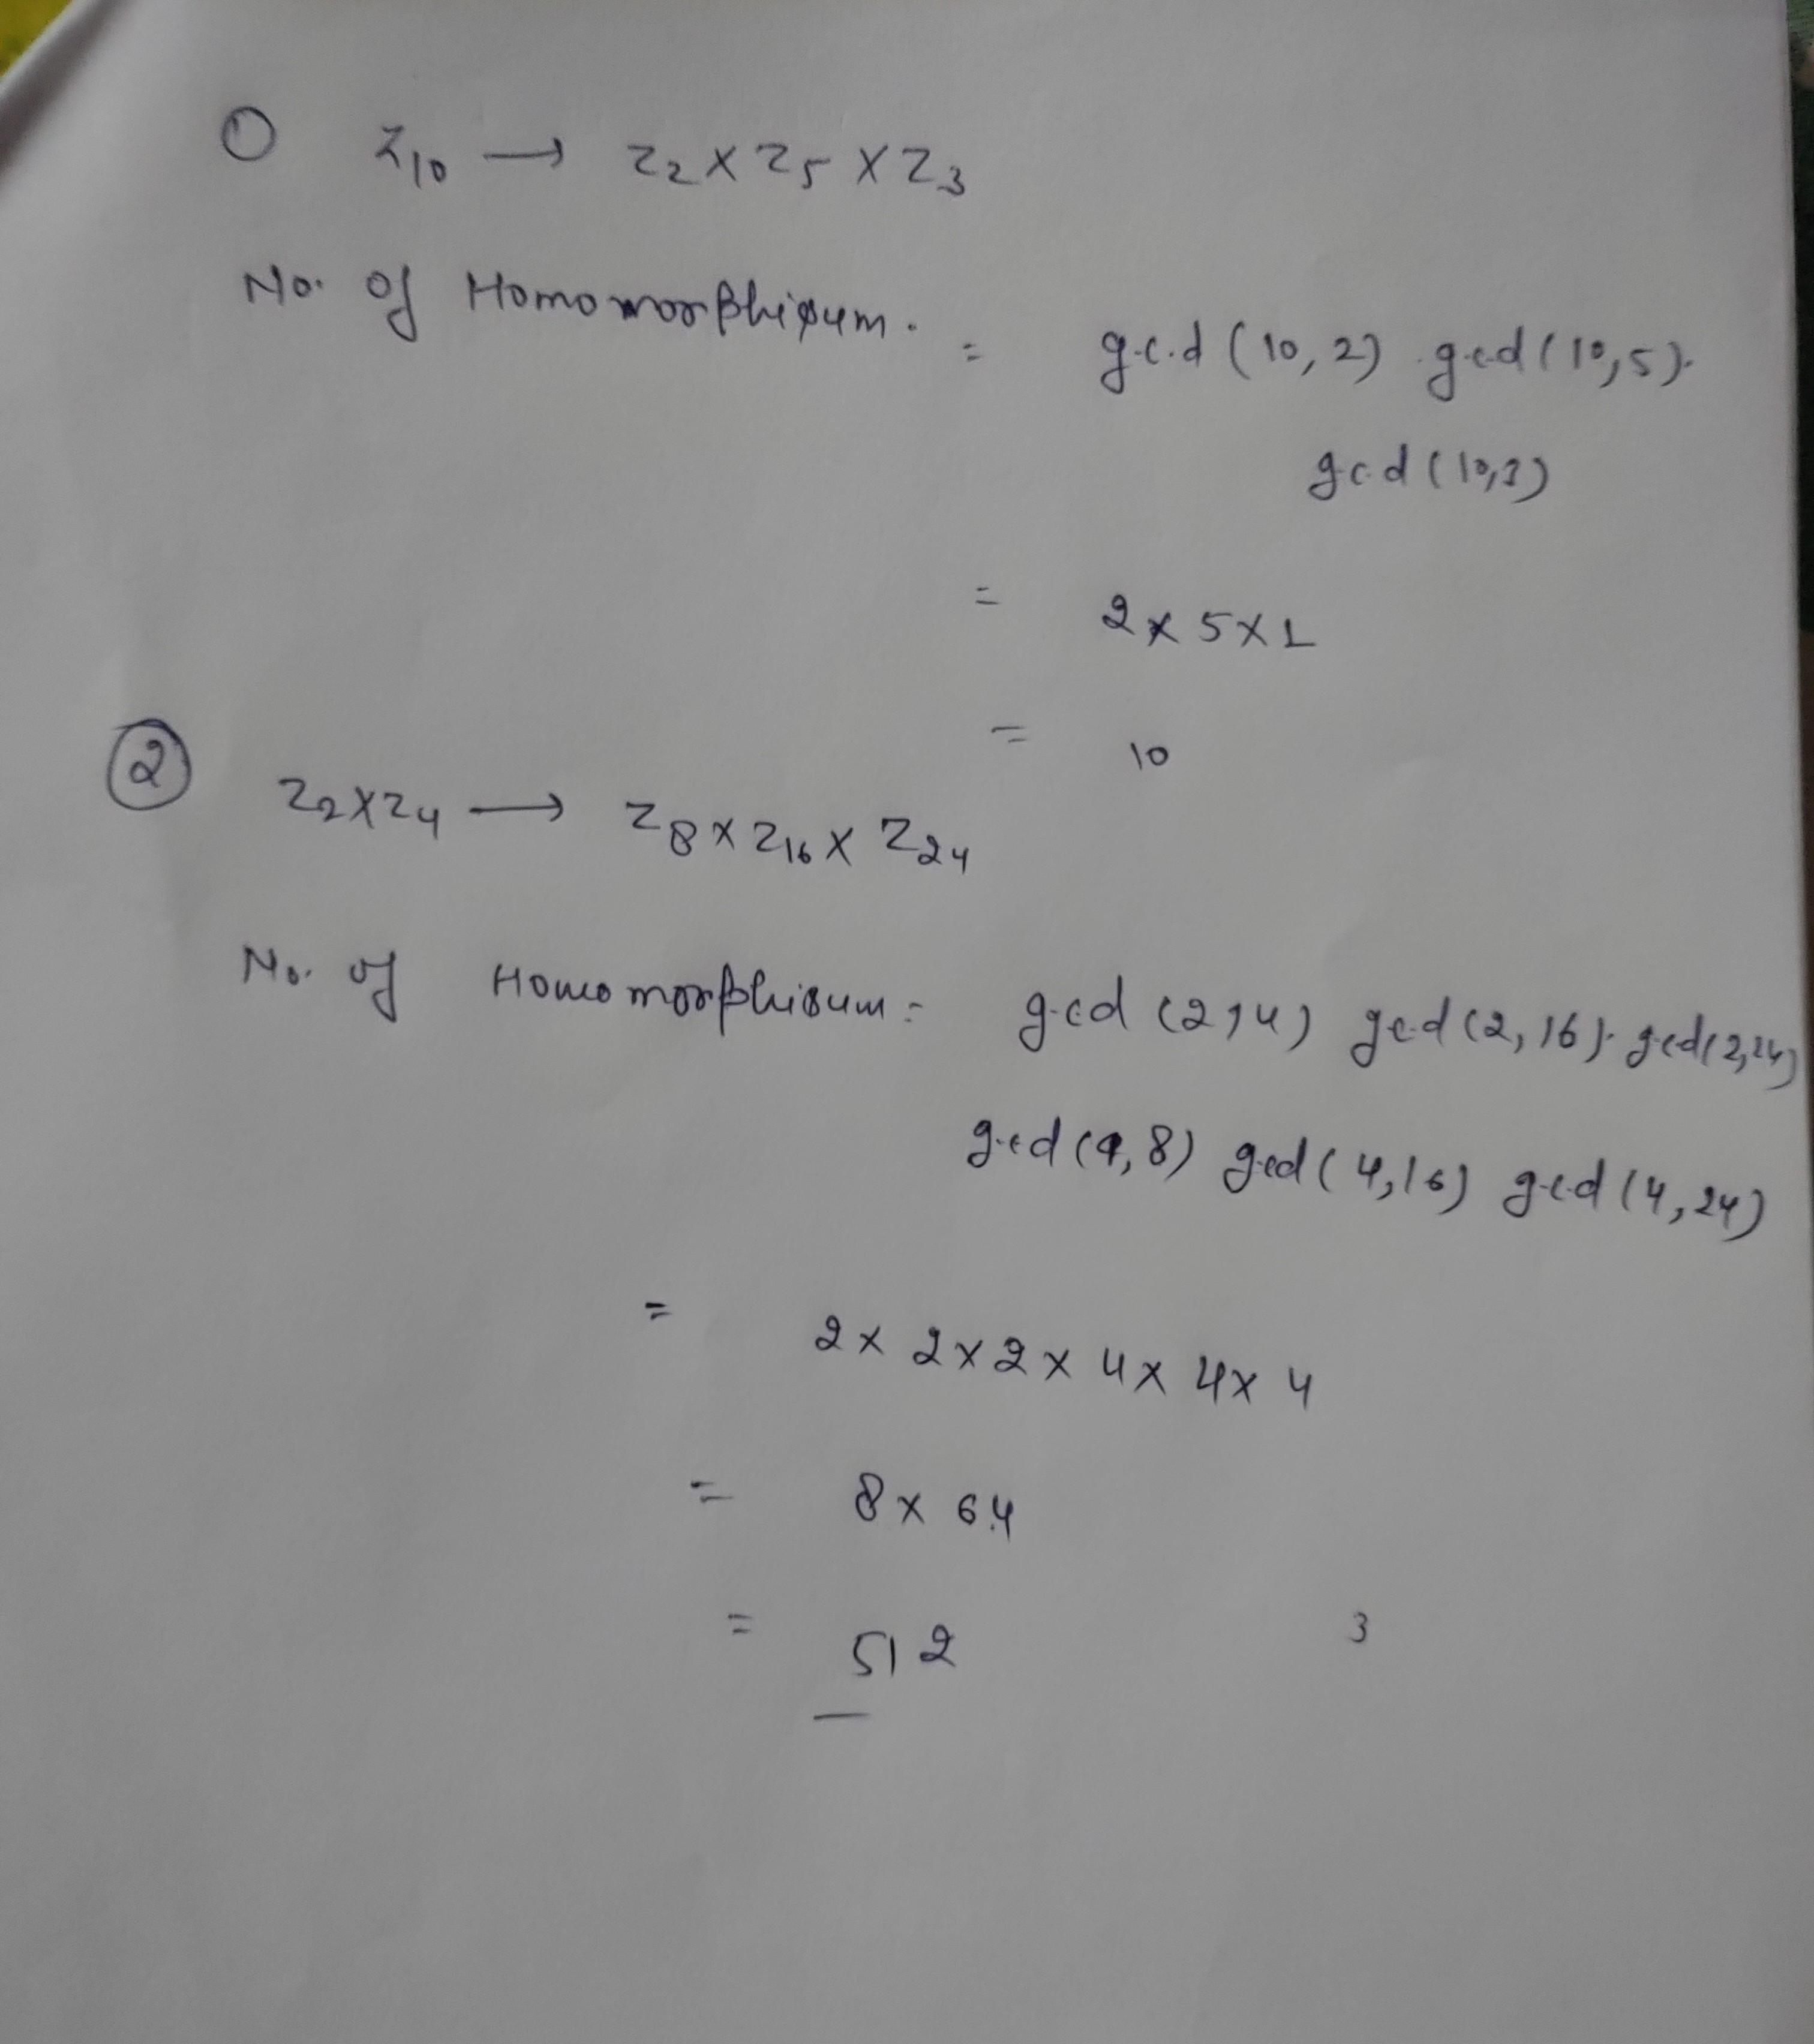 ① Z10 → Z2 × Z5 × Z3
No. of Homomorphisum. = g.c.d (10, 2) . g.c.d (10,5).
g.c.d (10,3)
= 2 × 5 × 1
= 10
② Z2 × Z4 → Z8 × Z16 × Z24
No. of Homomorphisum = g.c.d (2,4) g.c.d (2, 16). g.c.d (2,24)
g.c.d (4, 8) g.c.d (4,16) g.c.d (4, 24)
= 2 × 2 × 2 × 4 × 4 × 4
= 8 × 64
= 512
3